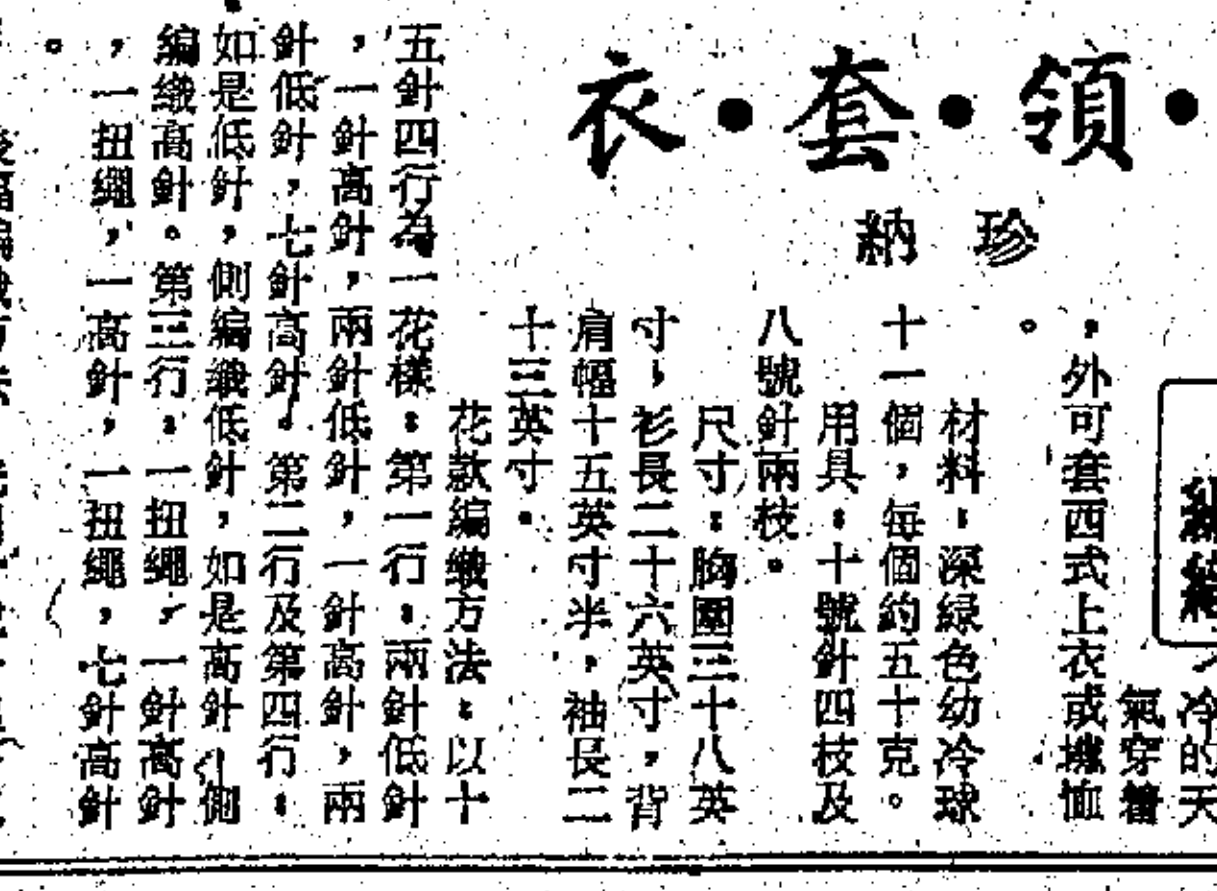 ・領・套・衣
珍納
冷的天
氣穿着
，外可套西式上衣或樽恤
。
材料：深綠色幼冷球
十一個，每個約五十克。
用具：十號針四枝及
八號針兩枝。
尺寸：胸圍三十八英
寸，衫長二十六英寸，背
肩幅十五英寸半，袖長二
十三英寸。
花款編織方法：以十
五針四行為一花樣：第一行：兩針低針
，一針高針，兩針低針，一針高針，兩
針低針，七針高針。第二行及第四行：
如是低針，側編織低針，如是高針，側
編織高針。第三行：一扭繩，一針高針
，一扭繩，一高針，一扭繩，七針高針
。